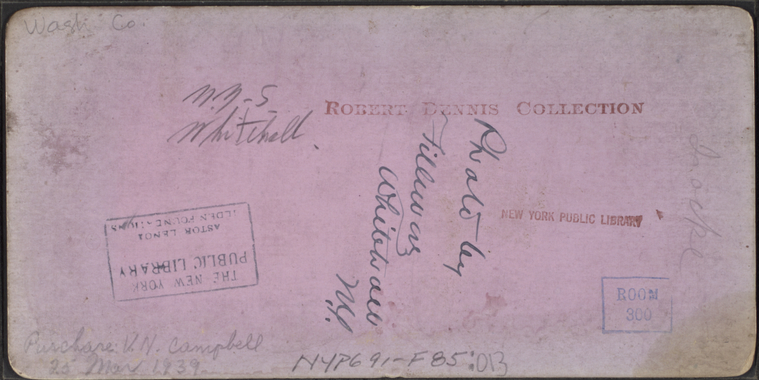 Wash. Co
N.Y-S
Whitehall.
ROBERT DENNIS COLLECTION
Photo by
Whitehall
N.Y.
NEW YORK PUBLIC LIBRARY
THE NEW YORK
PUBLIC LIBRARY
ASTOR LENOX
TILDEN FOUNDATIONS
ROOM
300
Purchase V.N. Campbell
25 Mar 1939
NYPG91-F85:013